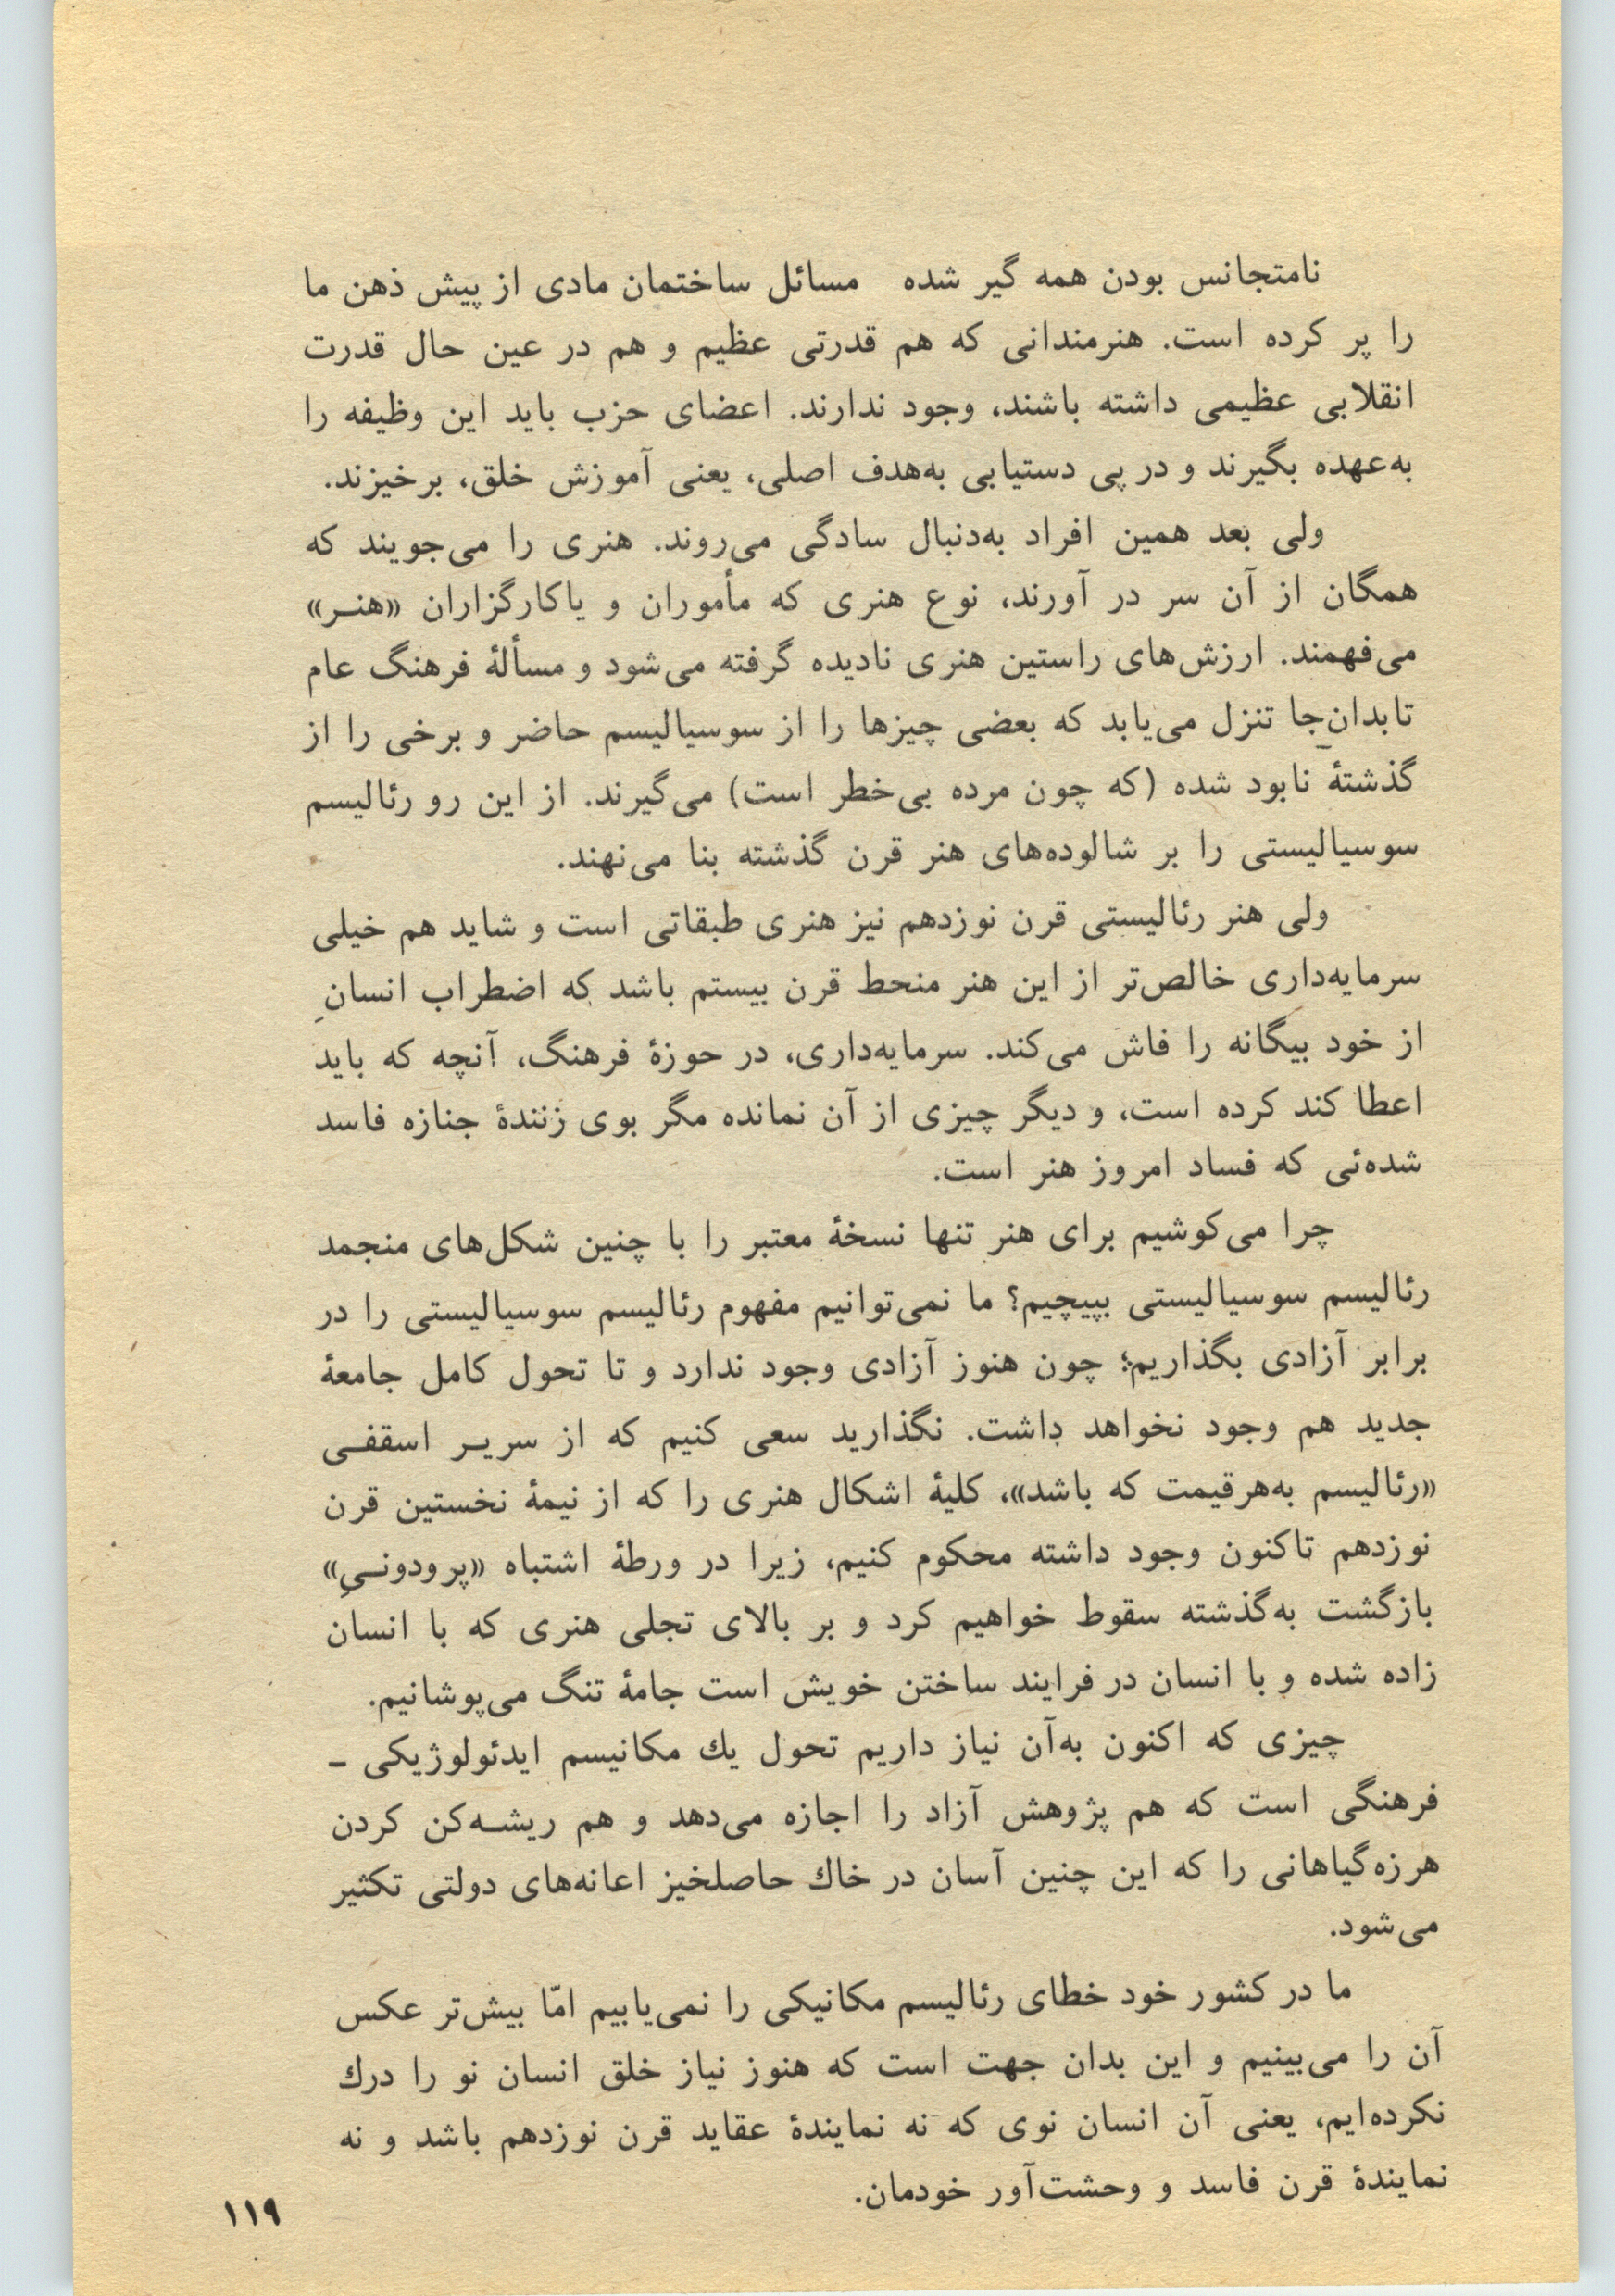 نامتجانس بودن همه گیر شده مسائل ساختمان مادی از پیش ذهن ما
را پر کرده است. هنرمندانی که هم قدرتی عظیم و هم در عین حال قدرت
انقلابی عظیمی داشته باشند، وجود ندارند. اعضای حزب باید این وظیفه را
به‌عهده بگیرند و در پی دستیابی به‌هدف اصلی، یعنی آموزش خلق، برخیزند.
ولی بعد همین افراد به‌دنبال سادگی می‌روند. هنری را می‌جویند که
همگان از آن سر در آورند، نوع هنری که مأموران و یا کارگزاران «هنـر»
می‌فهمند. ارزش‌های راستین هنری نادیده گرفته می‌شود و مسألۀ فرهنگ عام
تا بدان‌جا تنزل می‌یابد که بعضی چیزها را از سوسیالیسم حاضر و برخی را از
گذشتۀ نابود شده (که چون مرده بی‌خطر است) می‌گیرند. از این رو رئالیسم
سوسیالیستی را بر شالوده‌های هنر قرن گذشته بنا می‌نهند.
ولی هنر رئالیستی قرن نوزدهم نیز هنری طبقاتی است و شاید هم خیلی
سرمایه‌داری خالص‌تر از این هنر منحط قرن بیستم باشد که اضطراب انسانِ
از خود بیگانه را فاش می‌کند. سرمایه‌داری، در حوزۀ فرهنگ، آنچه که باید
اعطا کند کرده است، و دیگر چیزی از آن نمانده مگر بوی زنندۀ جنازه فاسد
شده‌ئی که فساد امروز هنر است.
چرا می‌کوشیم برای هنر تنها نسخۀ معتبر را با چنین شکل‌های منجمد
رئالیسم سوسیالیستی بپیچیم؟ ما نمی‌توانیم مفهوم رئالیسم سوسیالیستی را در
برابر آزادی بگذاریم؛ چون هنوز آزادی وجود ندارد و تا تحول کامل جامعۀ
جدید هم وجود نخواهد داشت. نگذارید سعی کنیم که از سریـر اسقفـی
«رئالیسم به‌هرقیمت که باشد»، کلیۀ اشکال هنری را که از نیمۀ نخستین قرن
نوزدهم تاکنون وجود داشته محکوم کنیم، زیرا در ورطۀ اشتباه «پرودونـیِ»
بازگشت به‌گذشته سقوط خواهیم کرد و بر بالای تجلی هنری که با انسان
زاده شده و با انسان در فرایند ساختن خویش است جامۀ تنگ می‌پوشانیم.
چیزی که اکنون به‌آن نیاز داریم تحول یك مکانیسم ایدئولوژیکی –
فرهنگی است که هم پژوهش آزاد را اجازه می‌دهد و هم ریشـه‌کن کردن
هرزه‌گیاهانی را که این چنین آسان در خاك حاصلخیز اعانه‌های دولتی تکثیر
می‌شود.
ما در کشور خود خطای رئالیسم مکانیکی را نمی‌یابیم امّا بیش‌تر عکس
آن را می‌بینیم و این بدان جهت است که هنوز نیاز خلق انسان نو را درك
نکرده‌ایم، یعنی آن انسان نوی که نه نمایندۀ عقاید قرن نوزدهم باشد و نه
نمایندۀ قرن فاسد و وحشت‌آور خودمان.
۱۱۹